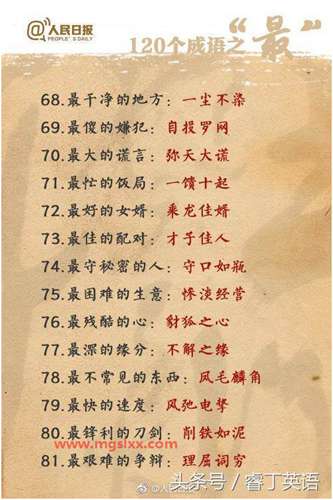 @人民日报
PEOPLE'S DAILY
120个成语之“最”
68.最干净的地方：一尘不染
69.最傻的嫌犯：自投罗网
70.最大的谎言：弥天大谎
71.最忙的饭局：一馈十起
72.最好的女婿：乘龙佳婿
73.最佳的配对：才子佳人
74.最守秘密的人：守口如瓶
75.最困难的生意：惨淡经营
76.最残酷的心：豺狐之心
77.最深的缘分：不解之缘
www.mgslxx.com
78.最不常见的东西：凤毛麟角
79.最快的速度：风驰电掣
80.最锋利的刀剑：削铁如泥
81.最艰难的争辩：理屈词穷
@人民日报
头条号/睿丁英语